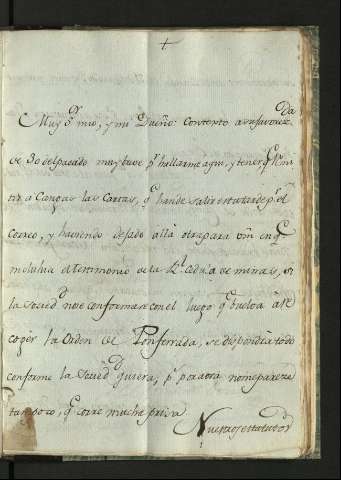 +
Muy S.r mio, y mi Dueño: Contexto a su favoreci.da
de 30 del pasado muy breve p.r hallarme aqui, y tener q.e remi
tir a Cangas las Cartas, q.e han de salir esta tarde p.r el
Correo, y haviendo dejado alla otra para Vm en q.e
incluhia el testimonio de la R.l Cedula de minas, si
la Socied.d no se conformare con el luego q.e buelva à re
coger la Orden de Ponferrada, se dispondra todo
conforme la Socied.d quiera, p.s por aora no me pareze
tampoco, q.e corre mucha prisa.
Nuestro